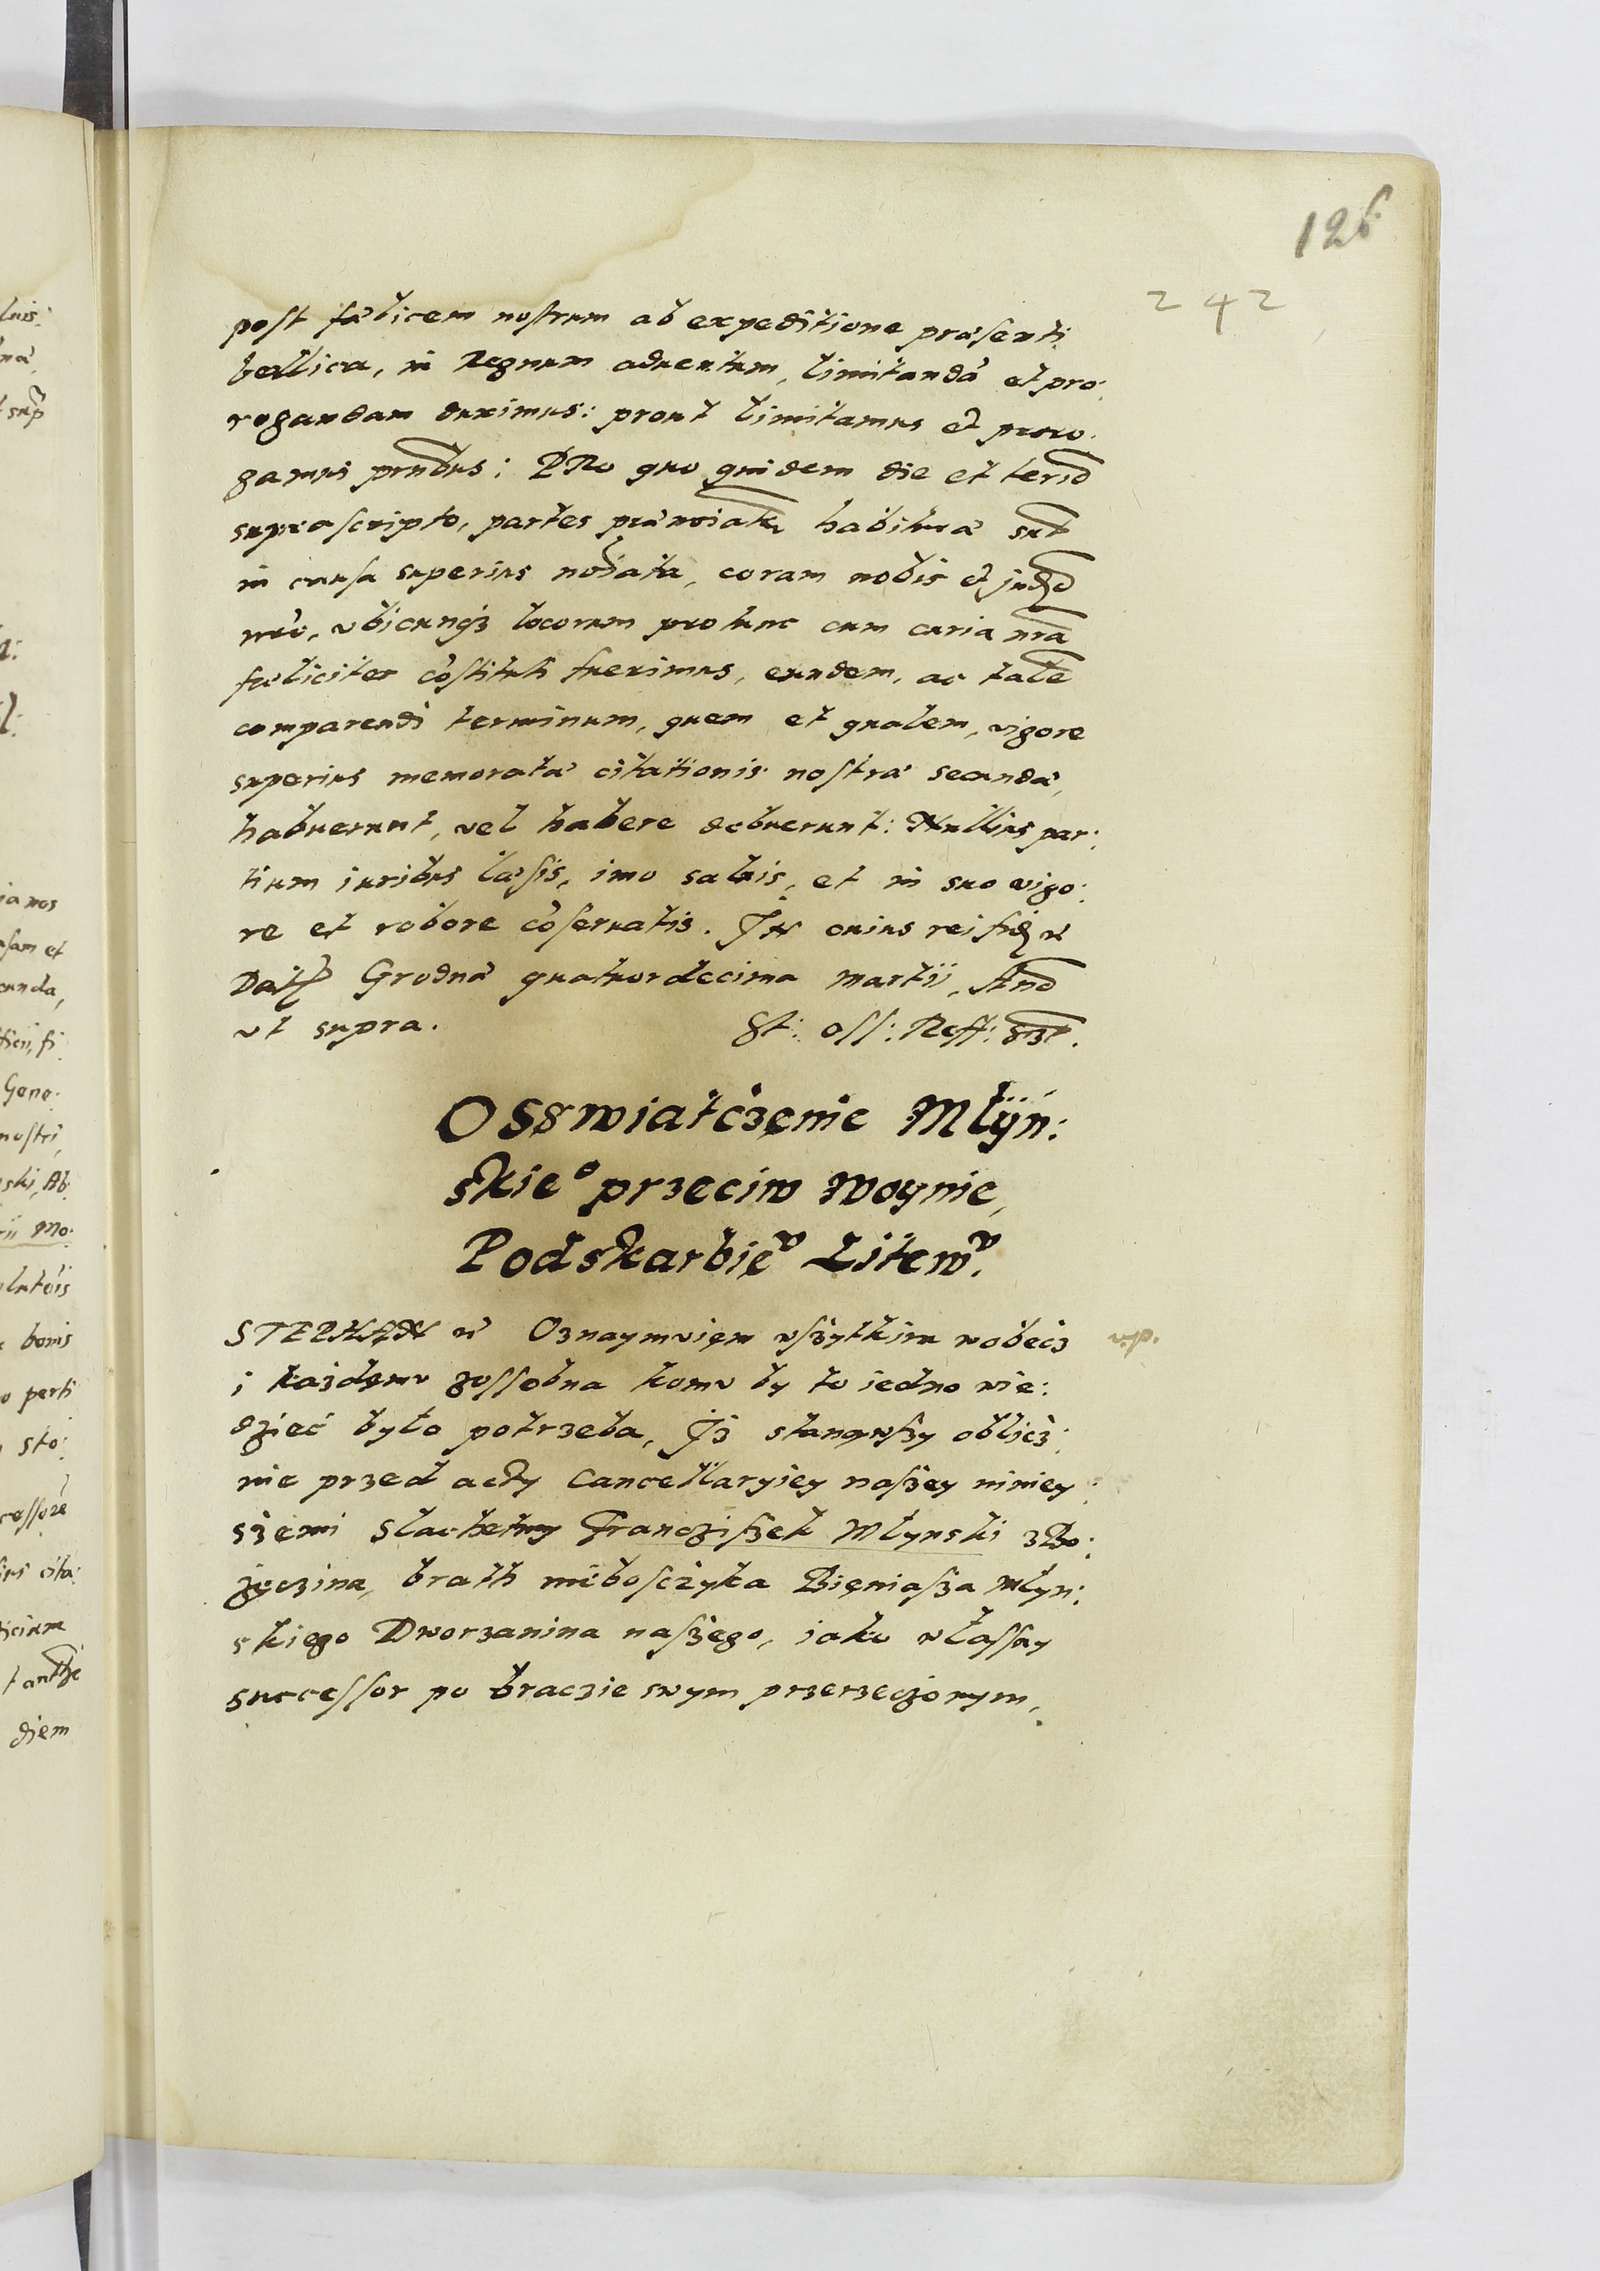 126
242
post fælicem nostrum ab expeditione præsenti
bellica, in Regnum aduentum, limitandã et pro:
rogandam duximus: prout limitamus et proro:
gamus prñtibus: PRo quo quidem die et termõ
suprascripto, partes prænoiatæ habituræ sũt
in causa superius notata, coram nobis et judõ
nrõ, vbicunqз locorum protunc cum curia nrã
fæliciter cõstituti fuerimus, eundem, ac talẽ
comparendi terminum, quem et qualem, vigore
superius memoratæ citationis nostræ secundæ,
habuerunt, vel habere debuerunt: Nullius par:
tium iuribus læsis, imo saluis, et in suo vigo:
re et robore cõseruatis. In cuius rei fidẽ
Datũ Grodnæ quatuordecima Martii, Annõ
vt supra. St: oss: Reff: sszt.
Osswiatczenie Mlÿn:
skie° przeciw Woynie,
Podskarbie° Litew°.
STEPHAN Oznaymuięm wszytkim wobecz
i kazdemu zossobna komu by to iedno wie:
dzieć było potrzeba, Iż stanąwszy oblicz:
nie przed acty Cancellaryiey naszey niniey:
szemi Slachetny Franczisżek Młynski
brath niebosczyka Bięniasza Młyn:
skiego Dworzanina naszego, iako własny
successor po braczie swym przerzeczonym,